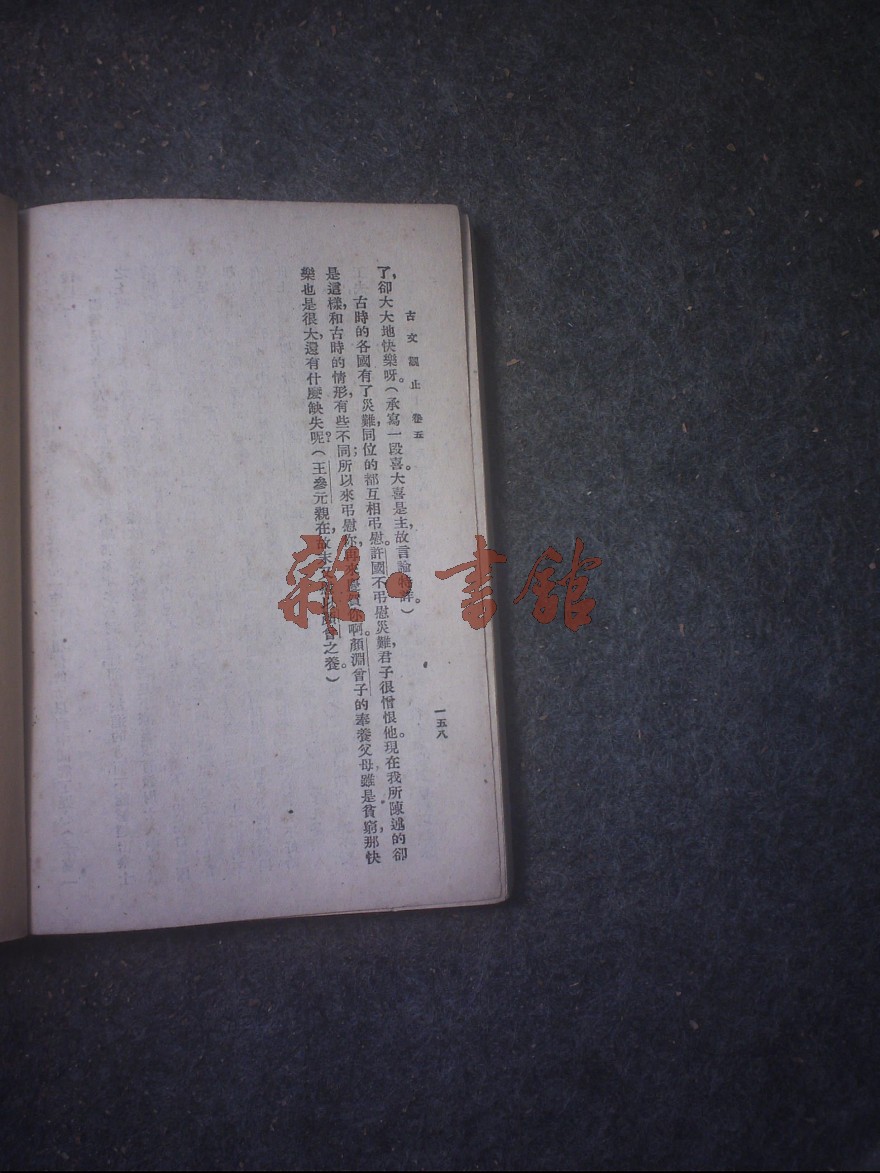 古文觀止 卷五
一五八
了，卻大大地快樂呀。（承寫一段喜。大喜是主，故言論特詳。）
古時的各國有了災難，同位的都互相弔慰。許國不弔慰災難，君子很憎恨他。現在我所陳述的卻
是這樣，和古時的情形，有些不同；所以來弔慰你，再來 你啊。顏淵曾子的奉養父母，雖是貧窮，那快
樂也是很大，還有什麼缺失呢？（王參元親在，故末 之養。）
雜·書館